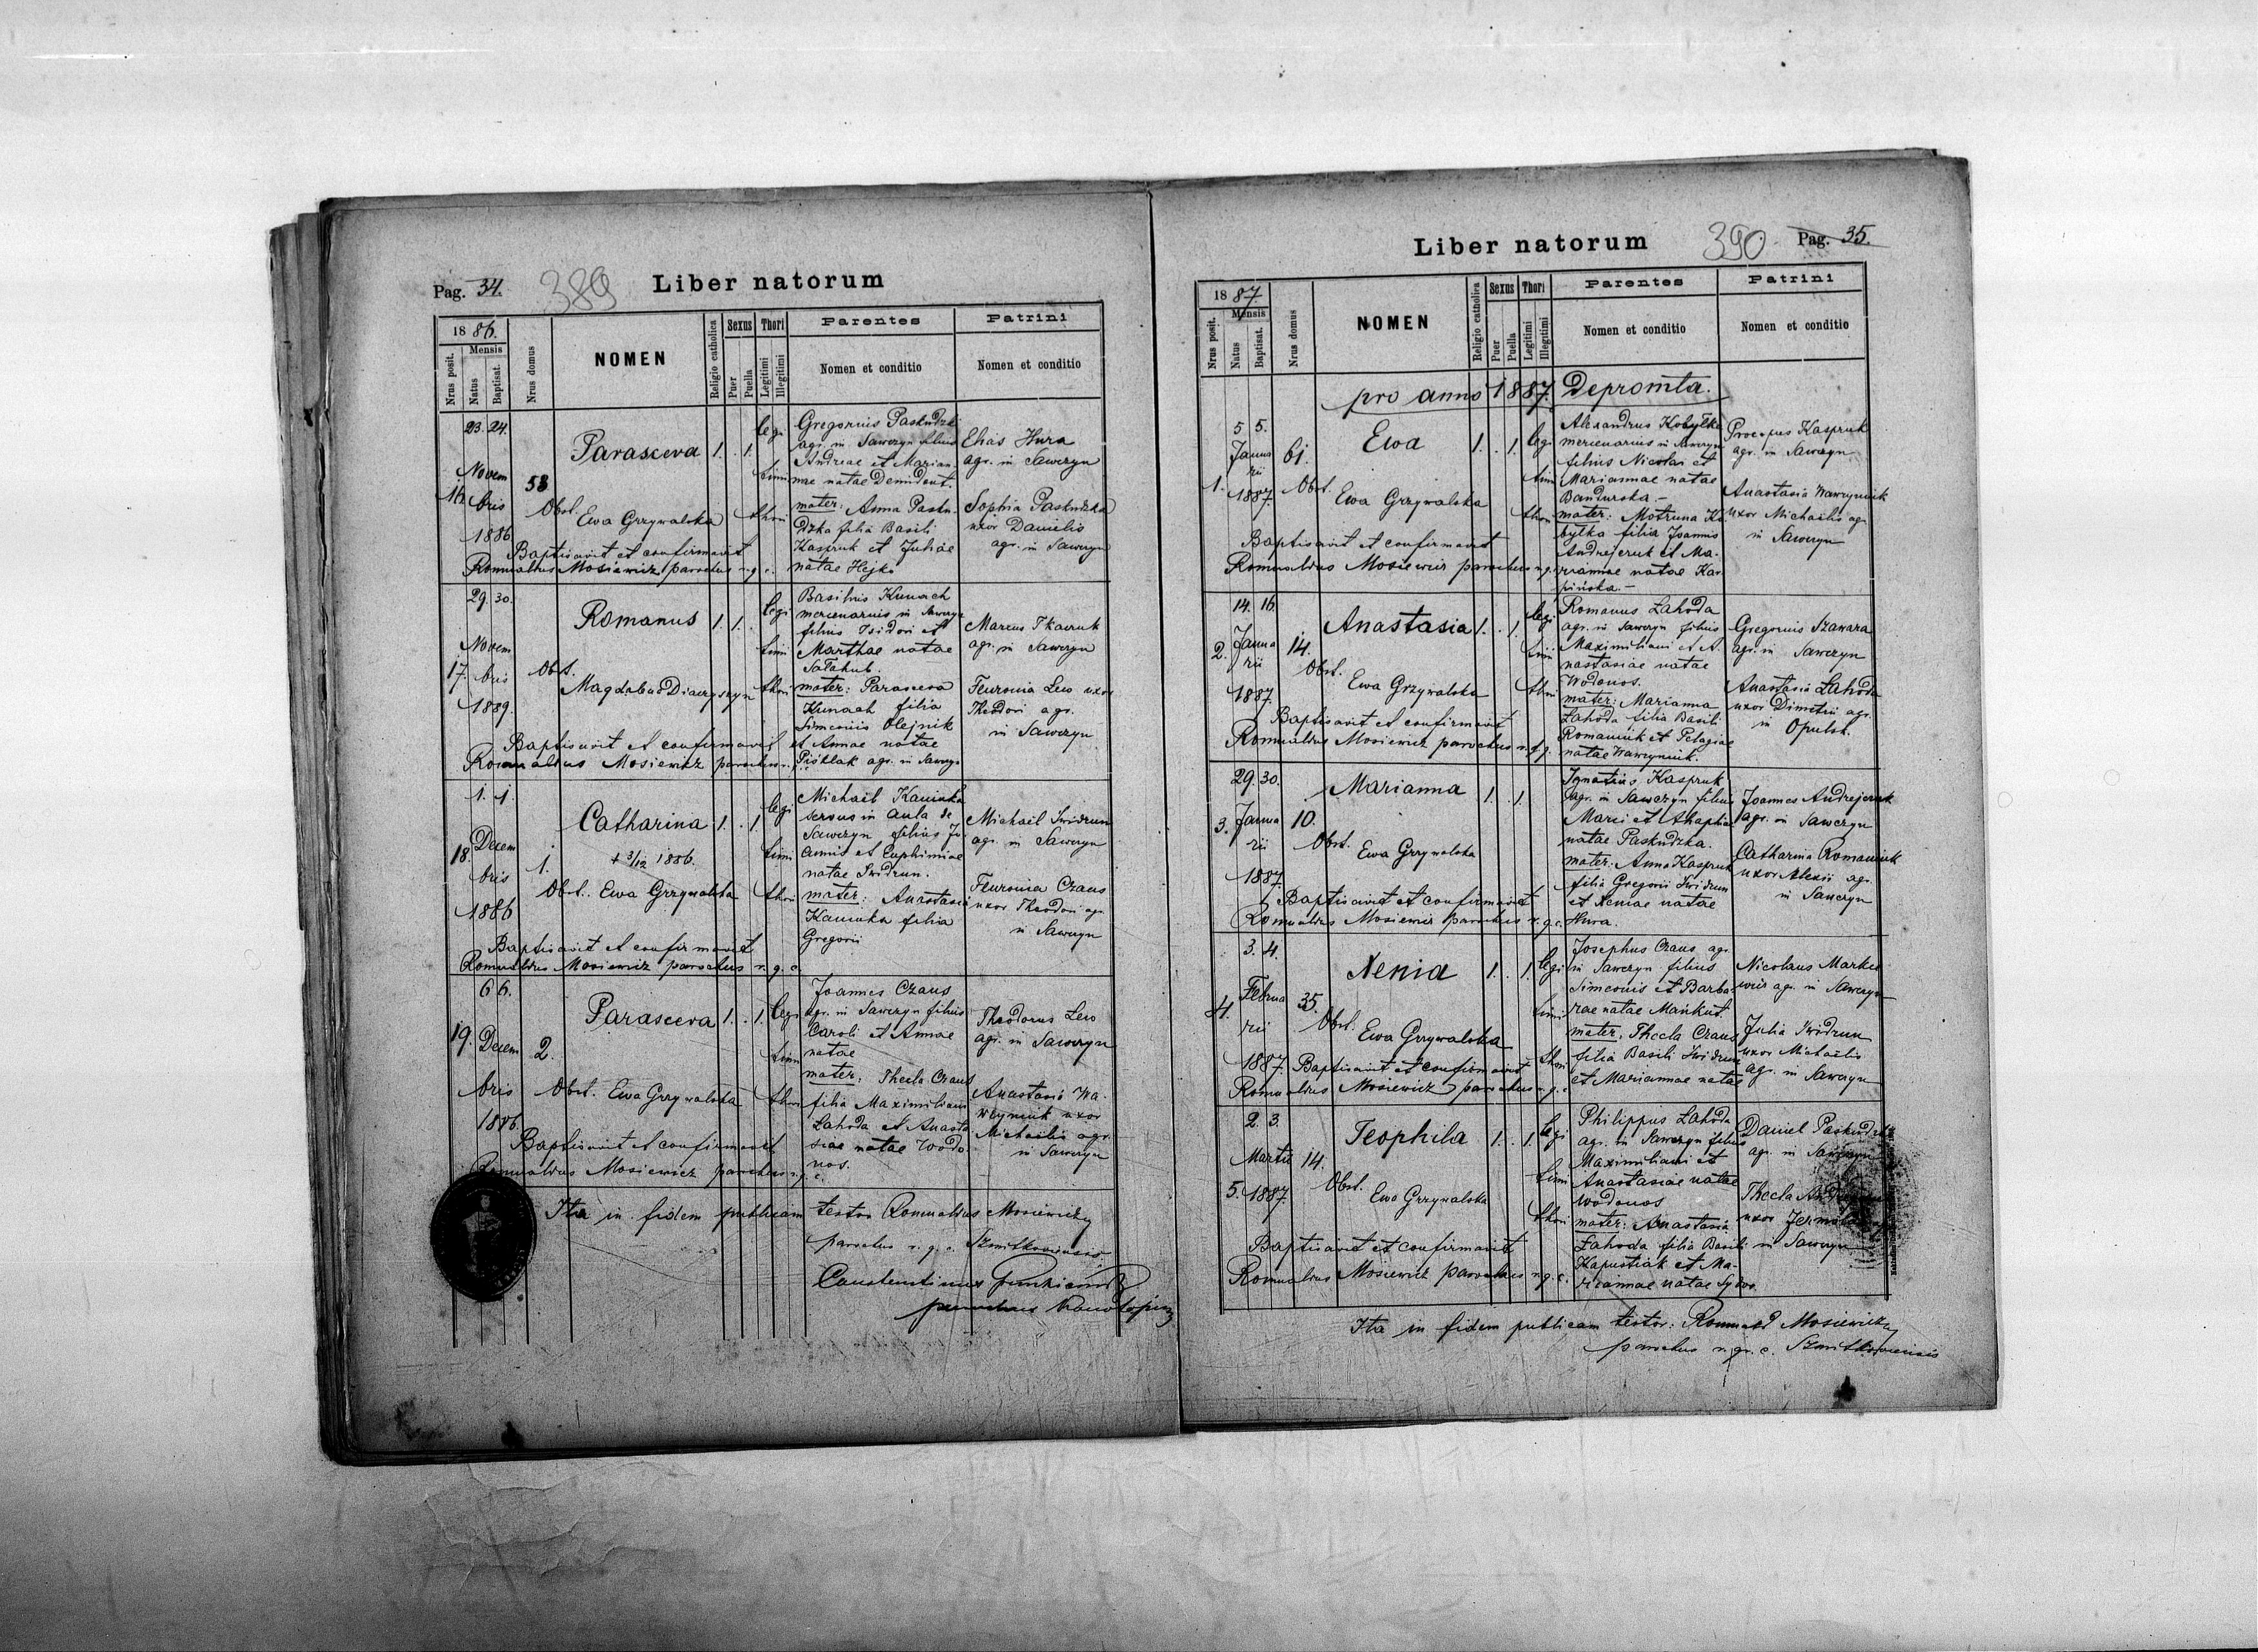 Pag. 34.
389
Liber natorum
1886.
Nrus posit.
Mensis
Natus
Baptisat.
Nrus domus
NOMEN
Religio catholica
Sexus
Puer
Puella
Thori
Legitimi
Illegitimi
Parentes
Nomen et conditio
Patrini
Nomen et conditio
16.
23. 24.
Novem
bris
1886
53
Parasceva 1. . 1.
Obst. Ewa Grzywalska
Baptisavit et confirmavit
Romualdus Mosiewicz parochus r. g. c.
legi
timi
thori
Gregorius Paskudzki
agr. in Sawczyn filius
Andreae et Marian
nae natae Demident.
mater: Anna Pasku
dzka filia Basili
Kaspruk et Juliae
natae Hejko
Elias Hura
agr. in Sawczyn
Sophia Paskudzka
uxor Danielis
agr. in Sawczyn
17.
29. 30.
Novem
bris
1889.
Romanus 1. 1.
Obst.
Magdalena
Baptisavit et confirmavit
Romualdus Mosiewicz parochus
legi
timi
thori
Basilius Kunach
mercenarius in Sawczyn
filius Isidori et
Marthae natae
Satahub.
mater: Parasceva
Kunach filia
Simeonis Olejnik
et Annae natae
agr. in Sawczyn
Marcus Tkaczuk
agr. in Sawczyn
Feuronia Lew uxor
Theodori agr.
in Sawczyn
18.
1. 1.
Decem
bris
1886
1.
Catharina 1. . 1.
+ 3/12 1886.
Obst. Ewa Grzywalska
Baptisavit et confirmavit
Romualdus Mosiewicz parochus r. g. c.
legi
timi
thori
Michaël Kaminka
servus in aula de
Sawczyn filius Jo
annis et Euphimiae
natae Swidrun.
mater: Anastasia
Kaminka filia
Gregorii
Michaël Swidrun
agr. in Sawczyn
Feuronia Czaus
uxor Theodori agr.
in Sawczyn
19.
6 6.
Decem
bris
1886.
2.
Parasceva 1. . 1.
Obst. Ewa Grzywalska
Baptisavit et confirmavit
Romualdus Mosiewicz parochus r. g. c.
legi
timi
thori
Joannes Czaus
agr. in Sawczyn filius
Caroli et Annae
natae
mater: Thecla Czaus
filia Maximiliani
Lahoda et Anasta
siae natae Wodo
nos.
Theodorus Lew
agr. in Sawczyn
Anastasia Wa
wryniuk uxor
Michaëlis agr.
in Sawczyn
Ita in fidem publicam testor Romualdus Mosiewicz
parochus r. g. c. Szmitkoviensis
Constantinus
parochus
Liber natorum
390
Pag. 35.
1887.
Nrus posit.
Mensis
Natus
Baptisat.
Nrus domus
NOMEN
Religio catholica
Sexus
Puer
Puella
Thori
Legitimi
Illegitimi
Parentes
Nomen et conditio
Patrini
Nomen et conditio
pro anno 1887. Depromta.
1.
5 5.
Janua
rii
1887.
61.
Ewa 1. . 1.
Obst. Ewa Grzywalska
Baptisavit et confirmavit
Romualdus Mosiewicz parochus r. g. c.
legi
timi
thori
Alexandrus Kobyłka
mercenarius in Sawczyn
filius Nicolai et
Mariannae natae
Bandurska –
mater: Motruna Ko
bytka filia Joannis
Andrejczuk et Ma-
riannae natae Kar
pińska. –
Procopus Kaspruk
agr. in Sawczyn
Anastasia Wawryniuk
uxor Michaëlis agr.
in Sawczyn
2.
14. 16.
Janua
rii
1887.
14.
Anastasia 1. . 1.
Obst.
Ewa Grzywalska
Baptisavit et confirmavit
Romualdus Mosiewicz parochus r. g. c.
legi
timi
thori
Romanus Lahoda
agr. in Sawczyn filius
Maximiliani et A
nastasiae natae
Wodonos.
mater: Marianna
Lahoda filia Basili
Romaniuk et Pelagiae
natae Wawryniuk.
Gregorius Szawara
agr. in Sawczyn
Anastasia Lahoda
uxor Dimetrii agr.
in Opulsk.
3.
29. 30.
Janua
rii
1887.
10.
Marianna 1. . 1.
Obst.
Ewa Grzywalska
Baptisavit et confirmavit
Romualdus Mosiewicz parochus r. g. c.
Ignatius Kaspruk
agr. in Sawczyn filius
Marci et Ahaphiae
natae Paskudzka.
mater: Anna Kaspruk
filia Gregorii Swidrun
et Xeniae natae
Hura.
Joannes Andrejczuk
agr. in Sawczyn
Catharina Romaniuk
uxor Alexii agr.
in Sawczyn
4.
3. 4.
Februa
rii
1887.
35.
Xenia 1. . 1.
Obst.
Ewa Grzywalska
Baptisavit et confirmavit
Romualdus Mosiewicz parochus r. g. c.
legi
timi
thori
Josephus Czaus agr.
in Sawczyn filius
Simeonis et Barba
rae natae Mankut.
mater: Thecla Czaus
filia Basili Swidrun
et Mariannae natae
Nicolaus Markie
wicz agr. in Sawczyn
Julia Swidrun
uxor Michaëlis
agr. in Sawczyn
5.
2. 3.
Martii
1887.
14.
Teophila 1. . 1.
Obst. Ewa Grzywalska
Baptisavit et confirmavit
Romualdus Mosiewicz parochus r. g. c.
legi
timi
thori
Philippus Lahoda
agr. in Sawczyn filius
Maximiliani et
Anastasiae natae
Wodonos
mater: Anastasia
Lahoda filia Basili
Kapustiak et Ma-
riannae natae
Daniel Paskudzki
agr. in Sawczyn
Thecla
uxor
in Sawczyn
Ita in fidem publicam testor: Romuald Mosiewicz
parochus r. gr. c. Szmitkoviensis